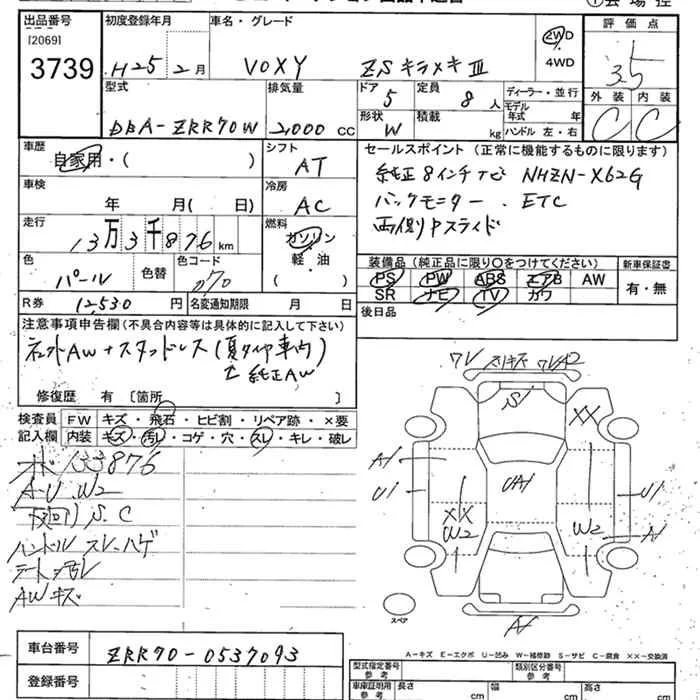 出品番号 初度登録年月 車名・グレード 評価点
[2069]
3739 H25 2月 VOXY ZSキラメキIII 2WD 4WD 3.5
型式 排気量 ドア 5 定員 8人 ディーラー・並行 外装 内装
DBA-ZRR70W 2,000 CC 形状 W 積載 kg モデル年式 年 ハンドル 左・右 C C
車歴 シフト セールスポイント (正常に機能するものに限ります)
自家用・( ) AT 純正8インチナビ NHZN-X62G
車検 冷房 バックモニター . ETC
年 月( 日) AC 両側Pスライド
走行 燃料
13万3千876km ガソリン・軽・油( )
色 色替 色コード 装備品(純正品に限り○をつけてください) 新車保証書
パール 070 PS PW ABS エアB AW 有・無
R券 12,530円 名変通知期限 月 日 SR ナビ TV カワ
注意事項申告欄(不具合内容等は具体的に記入して下さい) 後日品
ネットAW+スタッドレス(夏タイヤ車内)
純正AW
修復歴 有 [箇所 ]
検査員 FW キズ・飛石・ヒビ割・リペア跡・×要
記入欄 内装 キズ・汚レ・コゲ・穴・スレ・キレ・破レ
133876
A-U.W2
S.C
ハンドル スレ・ハゲ
シート汚レ
AWキズ
スリキズ
S
XX
A1
U1 UA1 U1
XX
W2 W2 A
スペア A
A-キズ E-エクボ U-凹み W-補修跡 S-サビ C-腐食 ××-交換済
車台番号 ZRR70-0537093
登録番号
型式指定番号 参考 類別区分番号 参考
車庫証明用 参考 長さ cm 幅 cm 高さ cm